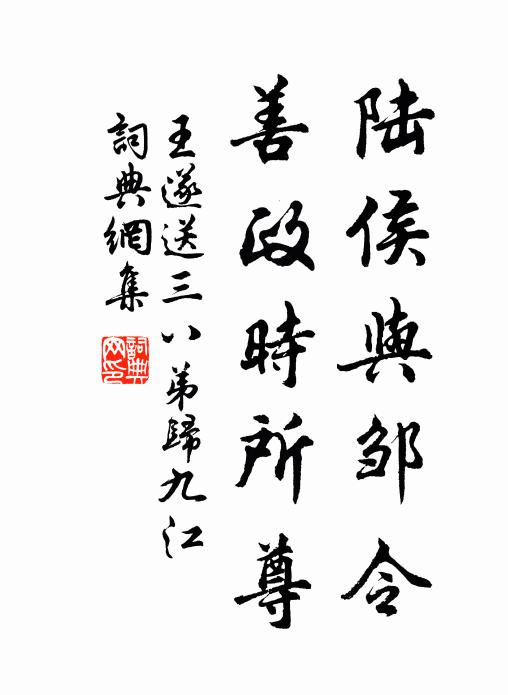 陆侯與邹令
善政時所尊
王遂送三八弟歸九江
詞典網集
詞典网印